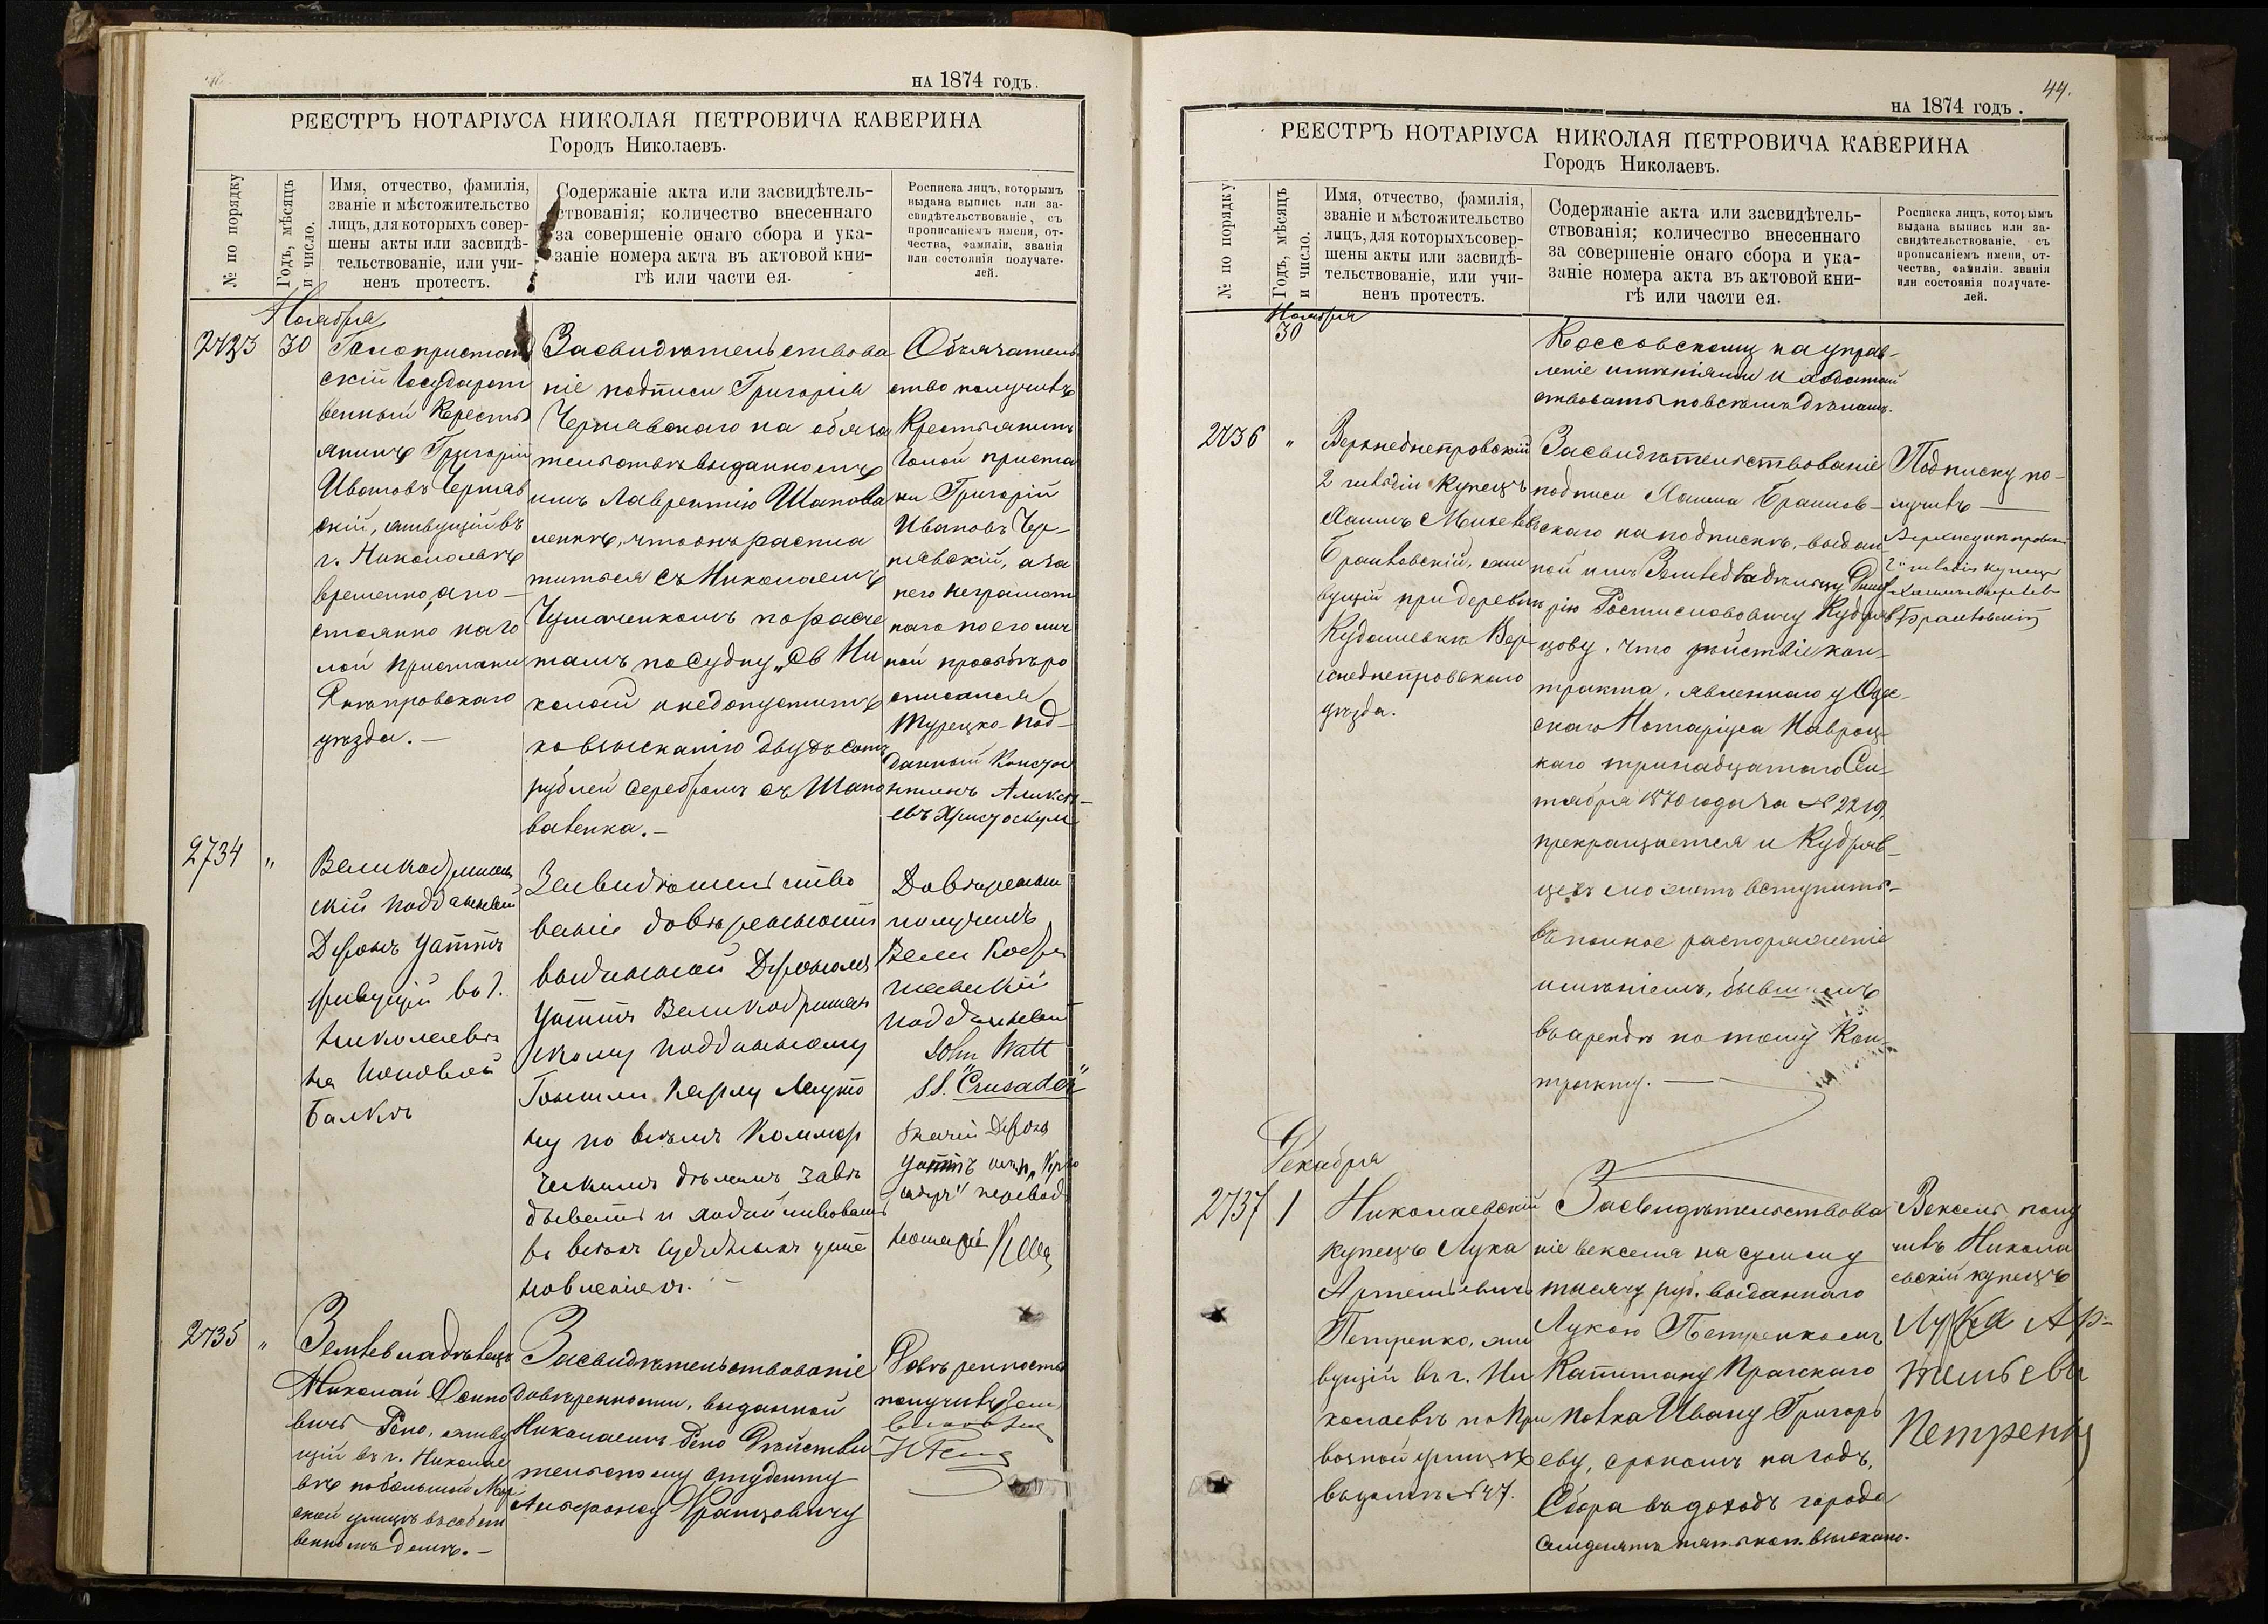 НА 1874 ГОДЪ.
РЕЕСТРЪ НОТАРІУСА НИКОЛАЯ ПЕТРОВИЧА КАВЕРИНА
Городъ Николаевъ.
№ по порядку
Годъ, мѣсяцъ
и число.
Имя, отчество, фамилія,
званіе и мѣстожительство
лицъ, для которыхъ совер-
шены акты или засвидѣ-
тельствованіе, или учи-
ненъ протестъ.
Содержаніе акта или засвидѣтель-
ствованія; количество внесеннаго
за совершеніе онаго сбора и ука-
заніе номера акта въ актовой кни-
гѣ или части ея.
Росписка лицъ, которымъ
выдана выпись или за-
свидѣтельствованіе, съ
прописаніемъ имени, от-
чества, фамиліи, званія
или состоянія получате-
лей.
Ноября
2733
30
Голопристан
скій Государст
венный Кресть
янинъ Григорій
Ивановъ Черняв
скій, живущій въ
г. Николаевѣ
временно, а по-
стоянно на Го
лой Пристани
Днѣпровскаго
уѣзда.—
Засвидѣтельствова
ніе подписи Григорія
Чернявскаго на обяза
тельствѣ выданномъ
имъ Лаврентію Шапова
ленкѣ, что онъ распла
тится съ Николаемъ
Чумаченкомъ по расче
тамъ по судну „Св Ни
колай и недопуститъ
ко взысканію двухъ сотъ
рублей серебромъ съ Шапо
валенка.—
Обязатель
ство получилъ
Крестьянинъ
Голой приста
ни Григорій
Ивановъ Чер-
нявскій, а за
него неграмот
наго по его лич
ной просьбѣ ро
списался
Турецко-под-
данный Конста
нтинъ Алексѣ-
евъ
2734
"
Великобритан
скій подданный
Джонъ Уаттъ
живущій въ г.
Николаевѣ
на Поповой
Балкѣ
Засвидѣтельство
ваніе довѣренности
выданной Джономъ
Уаттъ Великобритан
скому подданному
Карлу
ну по всѣмъ Коммер
ческимъ дѣламъ завѣ
дывать и ходатайствовать
въ всѣхъ судебныхъ уста
новленіяхъ.—
Довѣренность
получилъ
Великобри
танскій
подданный
John Watt
S.S. "Crusader"
Джонъ
Уаттъ
перевод
2735
"
Землевладѣлецъ
Николай Осипо
вичъ Рено, живу
щій въ г. Николае
вѣ по большой Мор
ской улицѣ въ собст
венномъ домѣ.—
Засвидѣтельствованіе
довѣренности, выданной
Николаемъ Рено Дѣйстви
тельному студенту
Альфонсу Францовичу
Довѣренность
получилъ Зем
44.
НА 1874 ГОДЪ.
РЕЕСТРЪ НОТАРІУСА НИКОЛАЯ ПЕТРОВИЧА КАВЕРИНА
Городъ Николаевъ.
№ по порядку
Годъ, мѣсяцъ
и число.
Имя, отчество, фамилія,
званіе и мѣстожительство
лицъ, для которыхъ совер-
шены акты или засвидѣ-
тельствованіе, или учи-
ненъ протестъ.
Содержаніе акта или засвидѣтель-
ствованія; количество внесеннаго
за совершеніе онаго сбора и ука-
заніе номера акта въ актовой кни-
гѣ или части ея.
Росписка лицъ, которымъ
выдана выпись или за-
свидѣтельствованіе, съ
прописаніемъ имени, от-
чества, фамиліи, званія
или состоянія получате-
лей.
Ноября
30
Коссовскому на управ-
леніе имѣніями и ходатай
ствовать по всѣмъ дѣламъ.
2736
"
Верхнеднепровскій
2 гильдіи Купецъ
Хаимъ
живу
щій при деревнѣ
Кудашевкѣ Вер-
хнеднепровскаго
уѣзда.
Засвидѣтельствованіе
подписи Хаима
скаго на подпискѣ, выдан
ной имъ Землевладѣльцу Дмит
рію Ростиславовичу Кудряв
цову, что дѣйствіе кон-
тракта, явленнаго у Одес-
скаго Нотаріуса Навроц-
каго тринадцатаго Сен-
тября 1870 года за № 2219,
прекращается и Кудряв-
цевъ можетъ вступить-
въ полное распоряженіе
имѣніемъ, бывшимъ
въ арендѣ по тому Кон-
тракту.—
Подписку по-
лучилъ—
Верхнеднепровскій
2й гильдіи купецъ
Хаимъ
Декабря
2737
1
Николаевскій
купецъ Лука
Артемьевичъ
Петренко, жи
вущій въ г. Ни
колаевѣ по
улицѣ
въ домѣ № 47.
Засвидѣтельствова
ніе векселя на сумму
тысячу руб. выданнаго
Лукою Петренкомъ
Капитану Пражскаго
полка Ивану Григорь
еву, срокомъ на годъ,
Сбора въ доходъ города
семдесятъ пять коп. взыскано.
Вексель полу
чилъ Никола
евскій купецъ
Лука Ар-
темьевъ
Петренко